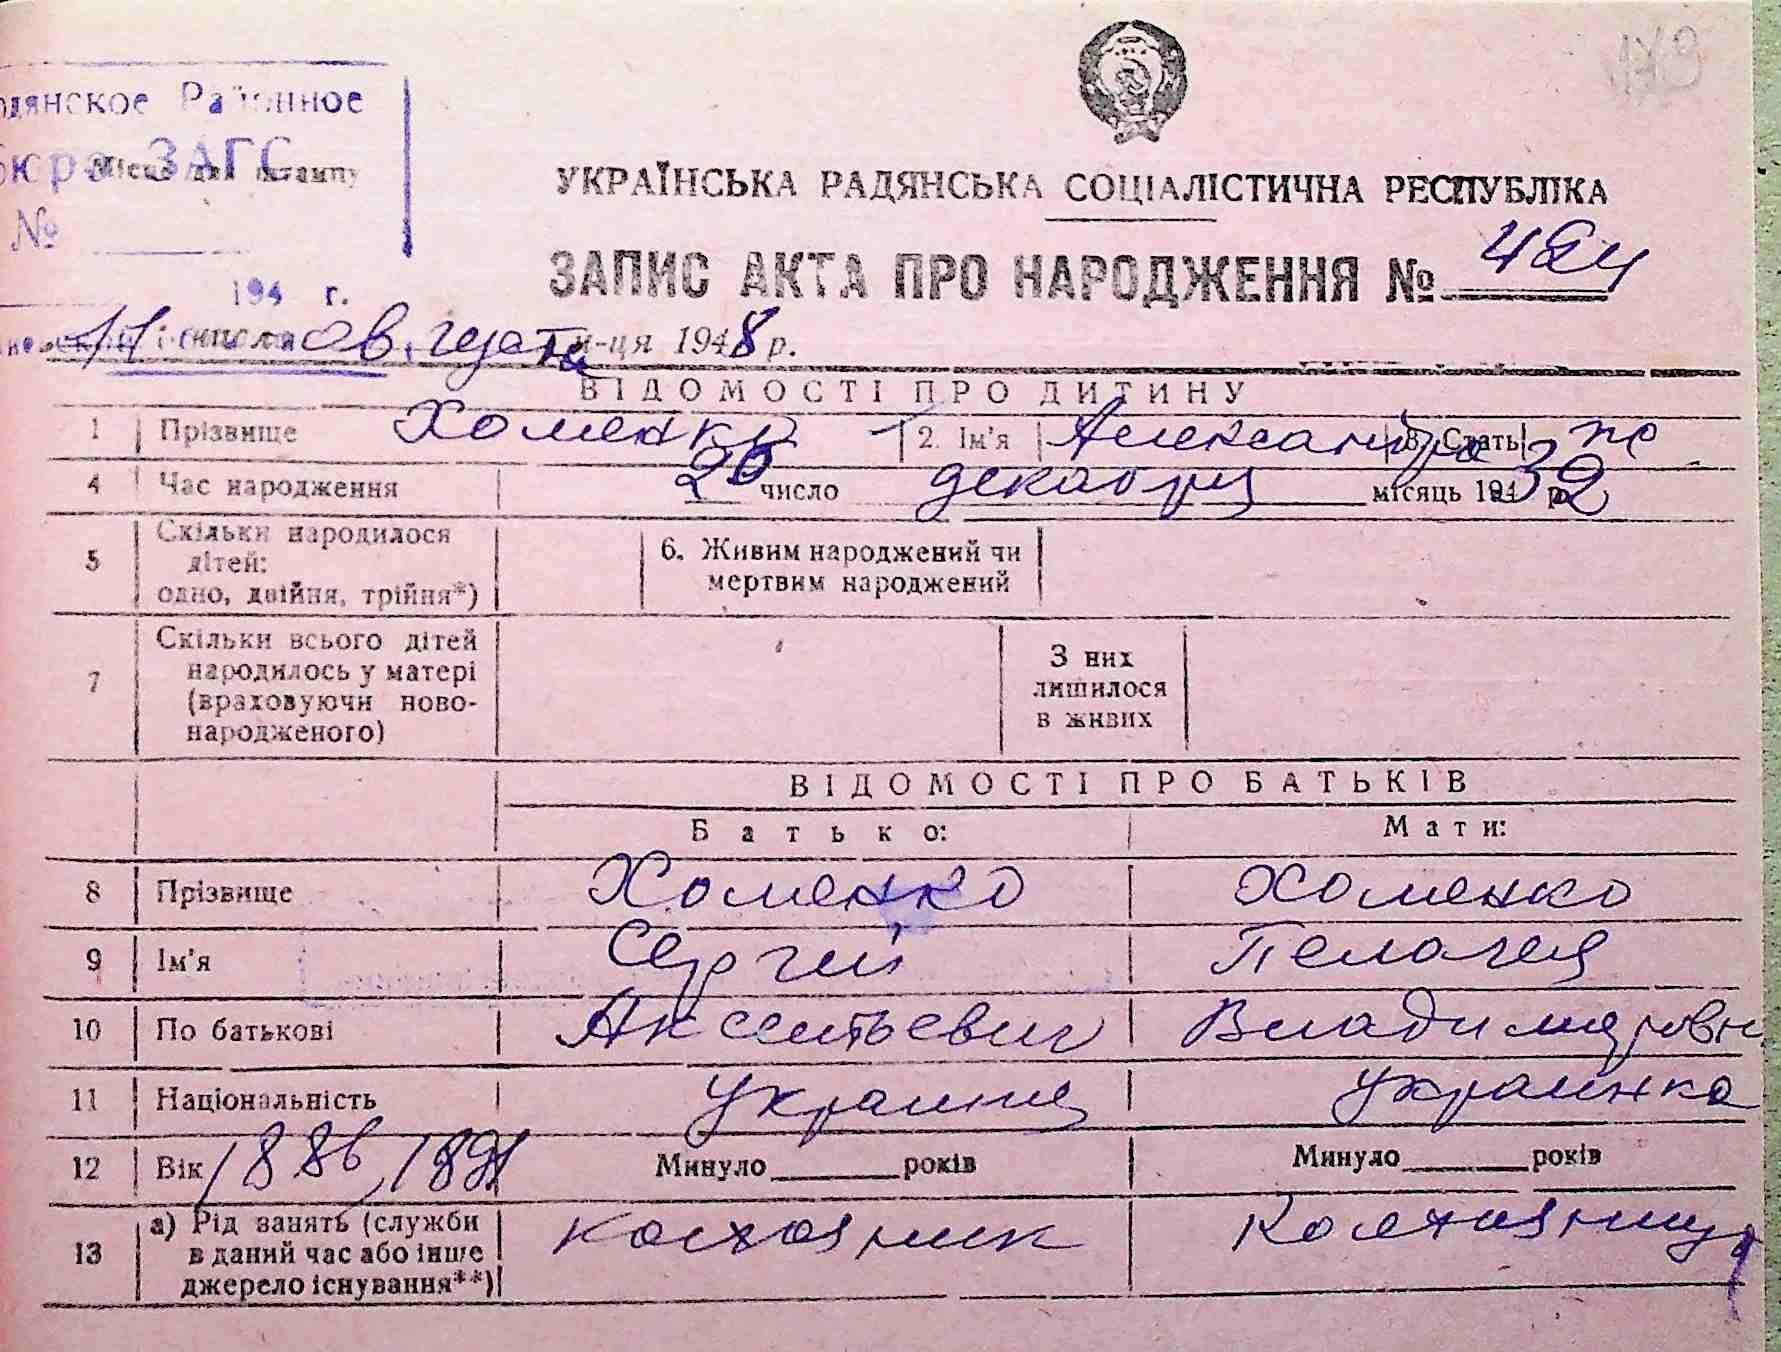 179
Районное
бюро ЗАГС
Місце для штампу
№
194 г.
УКРАЇНСЬКА РАДЯНСЬКА СОЦІАЛІСТИЧНА РЕСПУБЛІКА
ЗАПИС АКТА ПРО НАРОДЖЕННЯ №
11 августа м-ця 1948 р.
ВІДОМОСТІ ПРО ДИТИНУ
1 Прізвище Хоменко 2. Ім'я Александра 3. Стать ж
4 Час народження 26 число декабря місяць 1932 р.
5 Скільки народилося
дітей:
одно, двійня, трійня*)
6. Живим народжений чи
мертвим народжений
7 Скільки всього дітей
народилось у матері
(враховуючи ново-
народженого)
З них
лишилося
в живих
ВІДОМОСТІ ПРО БАТЬКІВ
Батько: Мати:
8 Прізвище Хоменко Хоменко
9 Ім'я Сергій Пелагея
10 По батькові Аксентьевич Владимировн
11 Національність украинец украинка
12 Вік 1886, 1891 Минуло років Минуло років
13 а) Рід занять (служби
в даний час або інше
джерело існування**)
колхозник колхозница